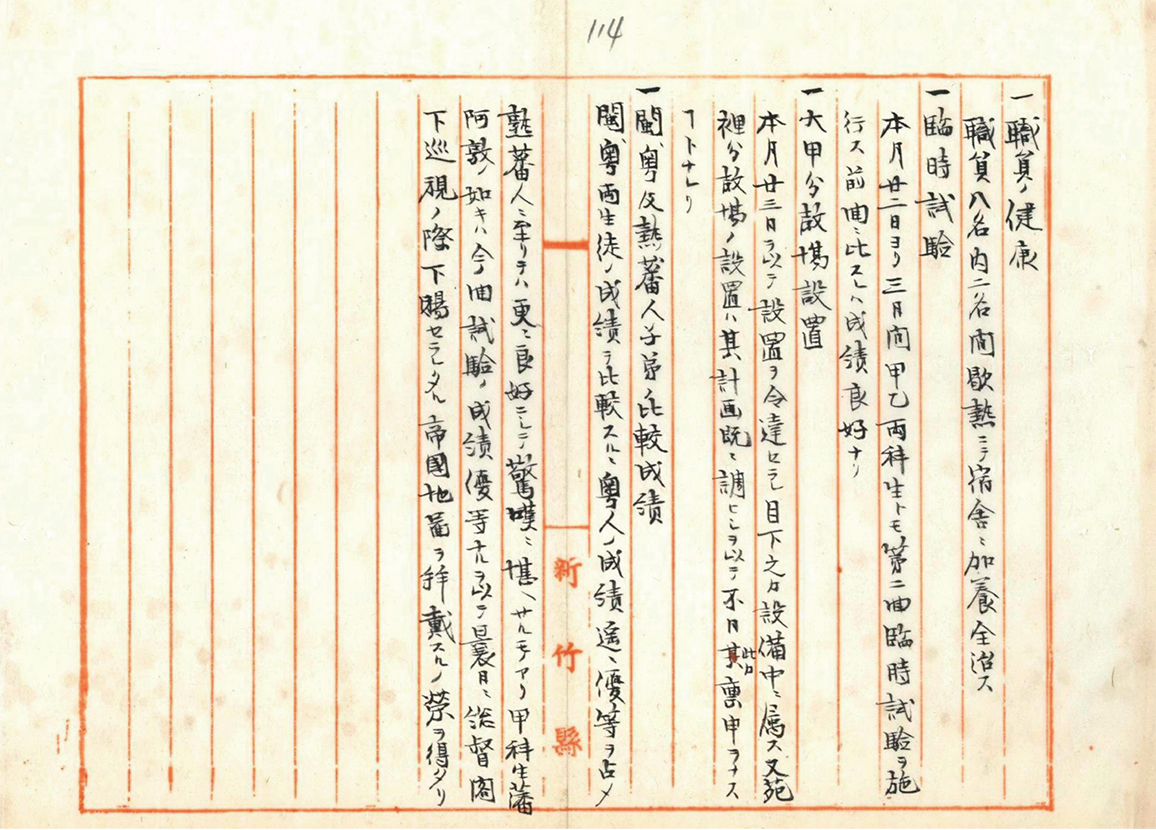 114
一職員ノ健康
職員八名内二名間歇熱ニテ宿舎ニ加養全治ス
一臨時試驗
本月廿二日ヨリ三月間甲乙両科生トモ第二回臨時試驗ヲ施
行ス前回ニ比スレハ成績良好ナリ
一大甲分教場設置
本月廿三日ヲ以テ設置ヲ令達セラレ目下之カ設備中ニ属ス又苑
裡分教場ノ設置ハ其計画既ニ調ヒシヲ以テ不日此カ稟申ヲナス
コトナレリ
一閩粤及熟蕃人子弟ノ比較成績
閩粤両生徒ノ成績ヲ比較スルニ粤人ノ成績遥ニ優等ヲ占メ
新竹縣
熟蕃人ニ至リテハ更ニ良好ニシテ驚嘆ニ堪ヘサルモアリ甲科生潘
阿敦ノ如キハ今回試驗ノ成績優等ナルヲ以テ曩日ニ総督閣
下巡視ノ際下賜セラレタル帝國地圖ヲ拝戴スルノ榮ヲ得タリ